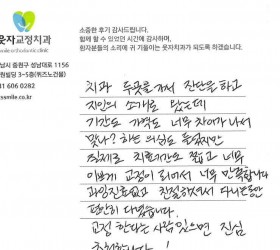 소중한 후기 감사드립니다.
함께 할 수 있었던 시간에 감사하며,
환자분들의 소리에 귀 기울이는 윳자치과가 되도록 하겠습니다.
윳자교정치과
smile orthodontic clinic
남시 중원구 성남대로 1156
원빌딩 3~5층(위즈노건물)
1) 606 0282
ssmile.co.kr
치과 두곳을 가서 진단을 하고
지인의 소개로 왔는데
기간도 가격도 너무 차이가나서
맞나? 하는 의심도 들었지만
실제로 치료기간도 짧고 너무
이쁘게 교정이 되어서 너무 만족합니다
과잉진료없고 친절하셔서 다니는동안
편안히 다녔습니다.
교정 한다는 사람 있으면 진심
추천합니다!